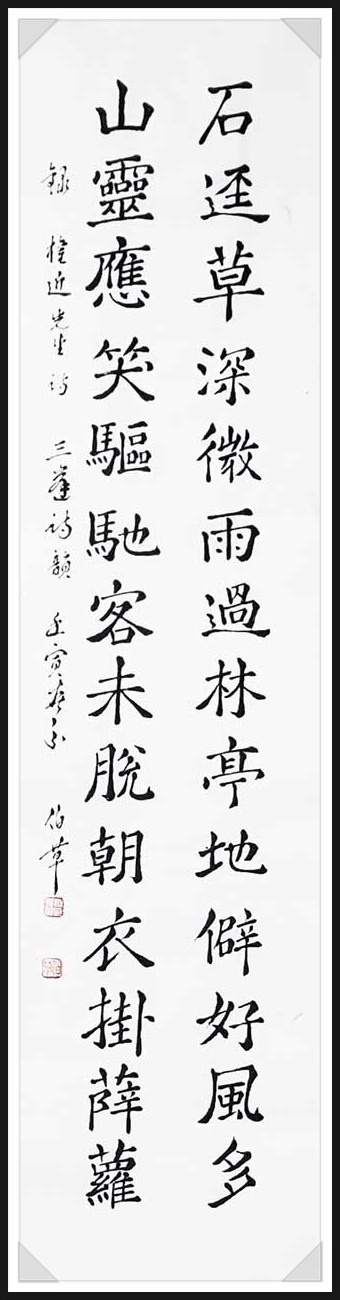 石逕草深微雨過林亭地僻好風多
山靈應笑驅馳客未脫朝衣掛薜蘿
錄 權近先生詩 三峯詩韻 壬寅 伯草